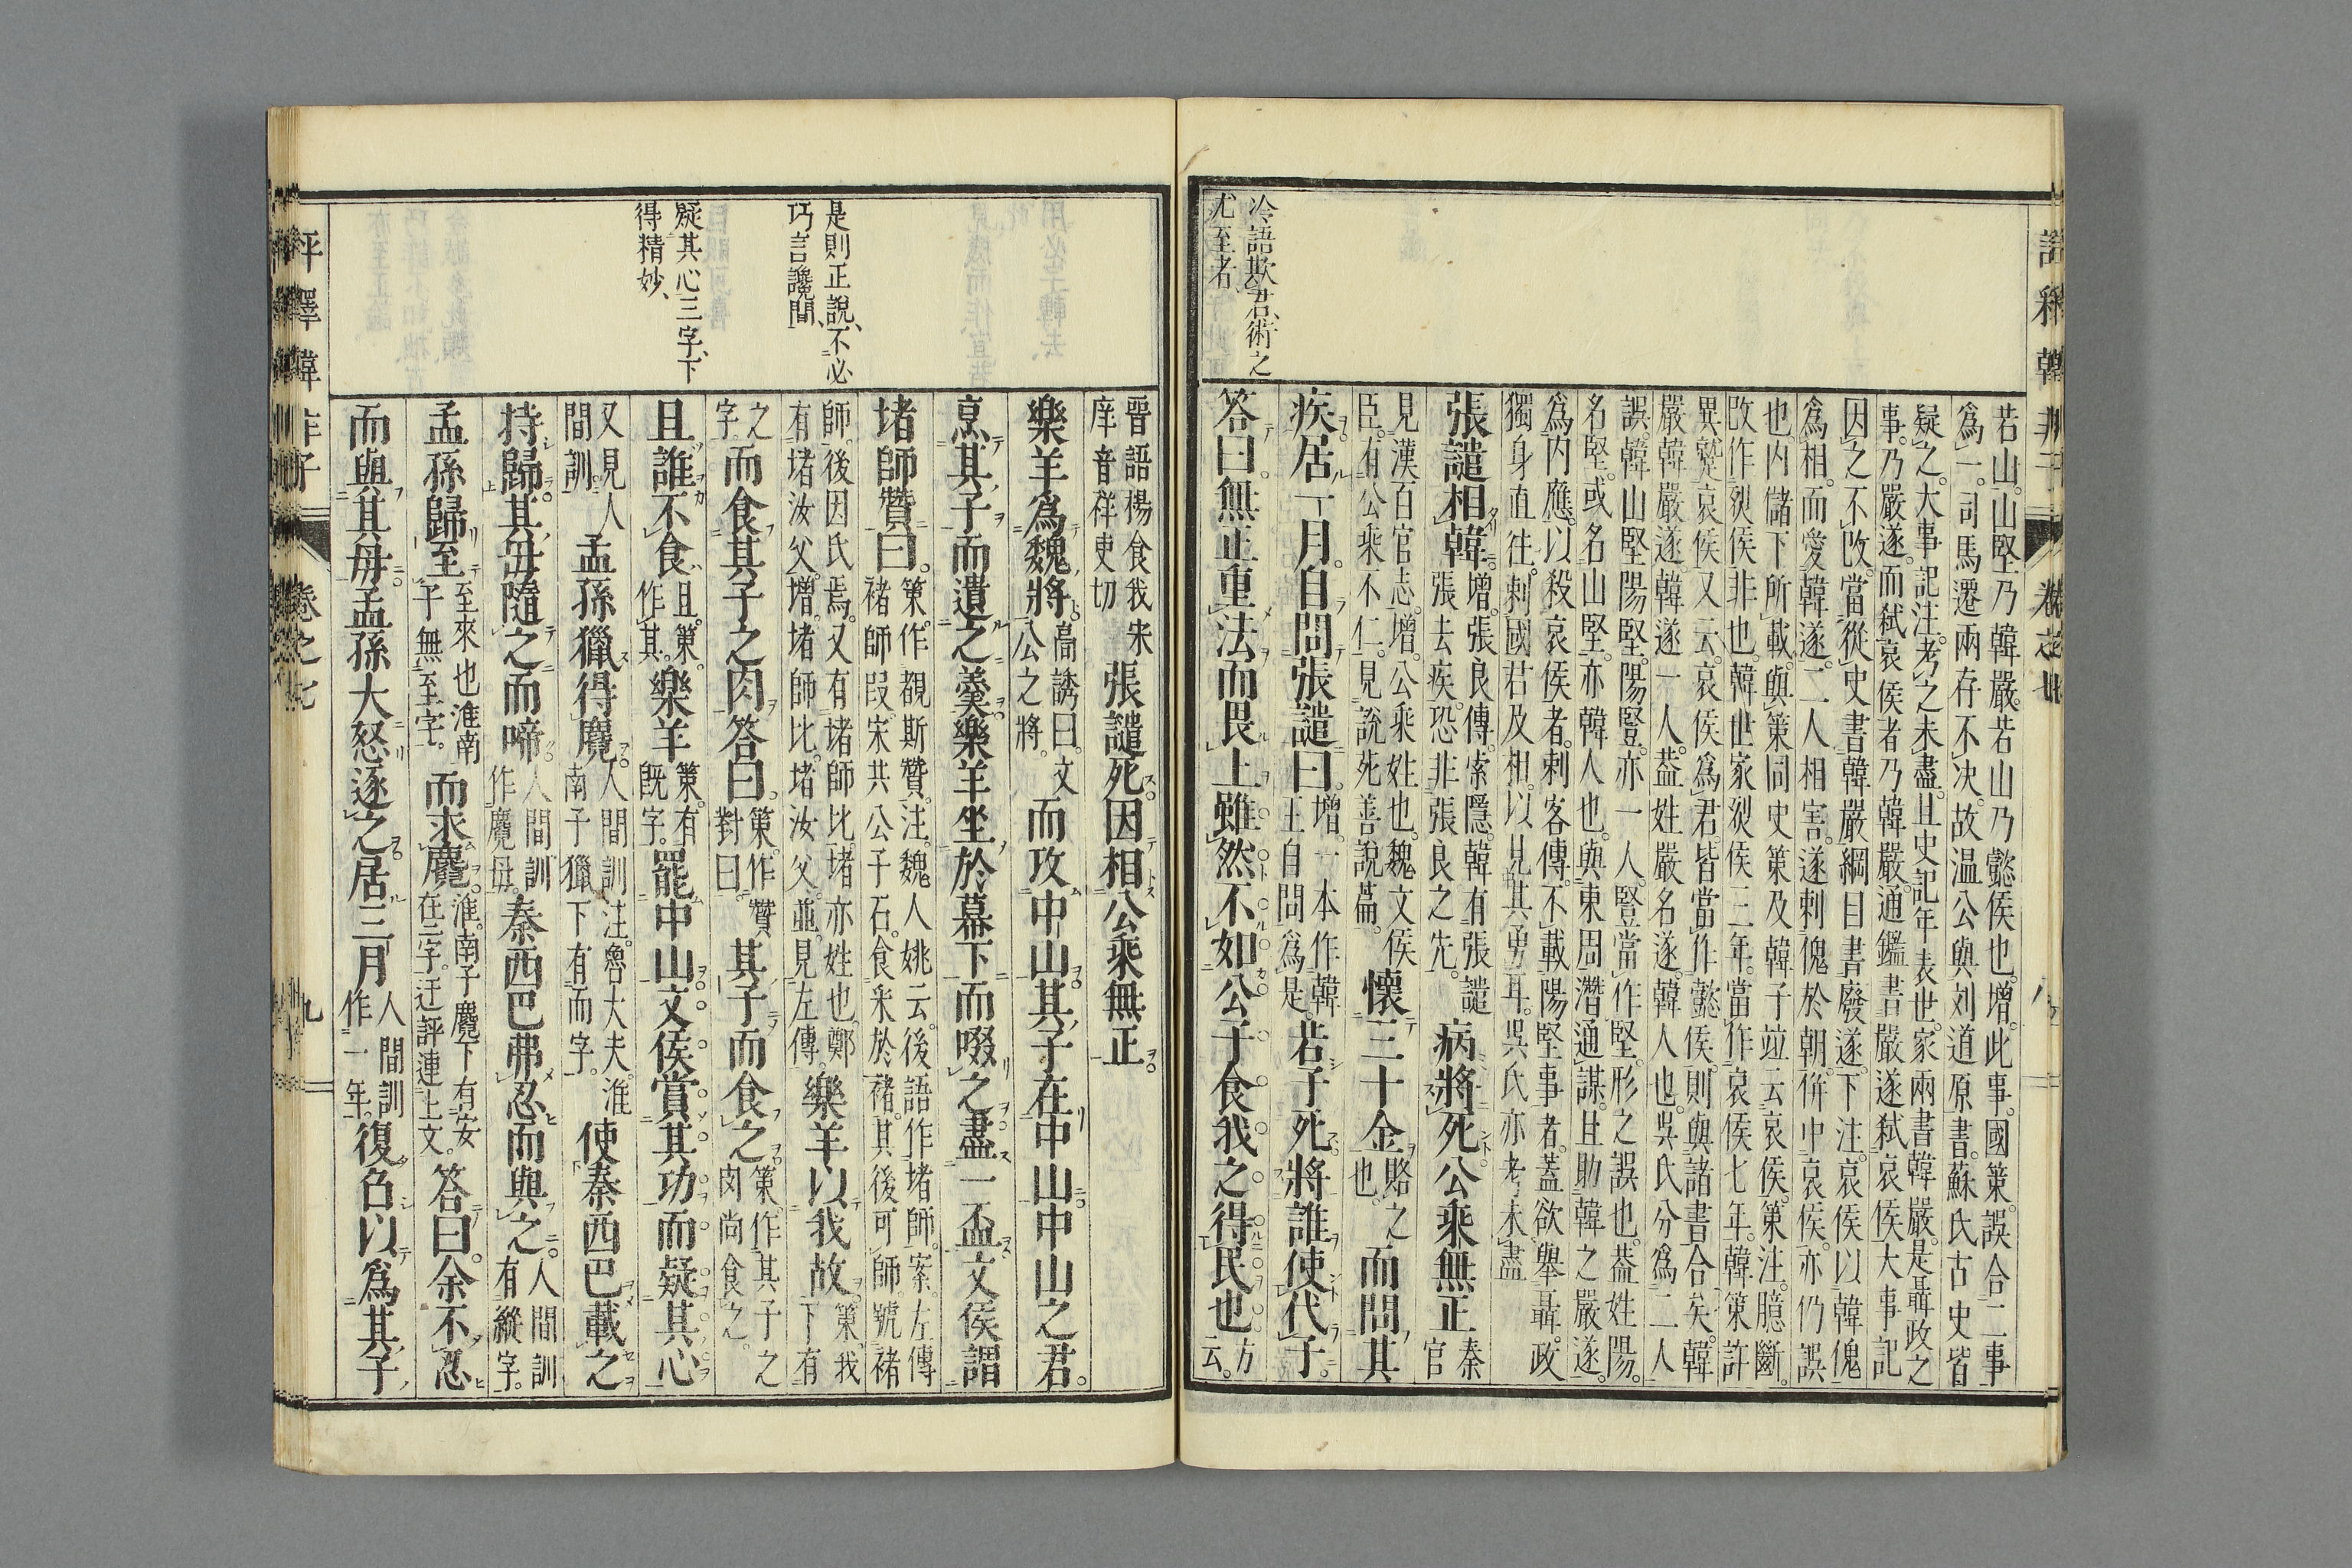 評釋韓非子 卷之七 八
冷語欺君術之
尤至者
若山山堅乃韓嚴若山乃懿侯也增此事國策誤合二事
爲一司馬遷兩存不决故温公與刘道原書蘇氏古史皆
疑之大事記注考之未盡且史記年表世家兩書韓嚴是聶政之
事乃嚴遂而弑哀侯者乃韓嚴通鑑書嚴遂弑哀侯大事記
因之不改當從史書韓嚴綱目書廢遂下注哀侯以韓傀
爲相而愛韓遂二人相害遂刺傀於朝倂中哀侯亦仍誤
也内儲下所載與策同史策及韓子竝云哀侯策注臆斷
改作烈侯非也韓世家烈侯三年當作哀侯七年韓策許
異蹵哀侯又云哀侯爲君皆當作懿侯則與諸書合矣韓
嚴韓嚴遂韓遂一人葢姓嚴名遂韓人也吳氏分爲二人
誤韓山堅陽堅陽豎亦一人豎當作堅形之誤也葢姓陽
名堅或名山堅亦韓人也與東周濳通謀且助韓之嚴遂
爲内應以殺哀侯者刺客傳不載陽堅事者蓋欲舉聶政
獨身直往刺國君及相以見其勇耳吳氏亦考未盡
張譴相韓增張良傳索隱韓有張譴
張去疾恐非張良之先病將死公乘無正秦
官
見漢百官志增公乘姓也魏文侯
臣有公乘不仁見說死善說篇懷三十金賂之
也而問其
疾居一月自問張譴曰增一本作韓
王自問爲是若子死將誰使代子
答曰無正重法而畏上雖然不如公子食我之得民也方
云
晉語楊食我朱
庠音祥吏切張譴死因相公乘無正
樂羊爲魏將高誘曰文
公之將而攻中山其子在中山中山之君
烹其子而遺之羹樂羊坐於幕下而啜之盡一盃文侯謂
堵師贊曰策作覩斯贊注魏人姚云後語作堵師案左傳
褚師段宋共公子石食采於褚其後可師號褚
師後因氏焉又有堵師比堵亦姓也鄭
有堵汝父增堵師比堵汝父並見左傳樂羊以我故策我
下有
之
字而食其子之肉答曰策作贊
對曰其子而食之策作其子之
肉尚食之
且誰不食且策
作其樂羊策有
既字罷中山文侯賞其功而疑其心
又見人
間訓孟孫獵得麑人間訓注魯大夫淮
南子獵下有而字使秦西巴載之
持歸其母隨之而啼人間訓
作麑母秦西巴弗忍而與之人間訓
有縱字
孟孫歸至至來也淮南
子無至字而求麑淮南子麑下有安
在二字迂評連上文答曰余不忍
而與其母孟孫大怒逐之居三月人間訓
作一年復召以爲其子
是則正說不必
巧言讒間
疑其心三字下
得精妙
評釋韓非子 卷之七 九